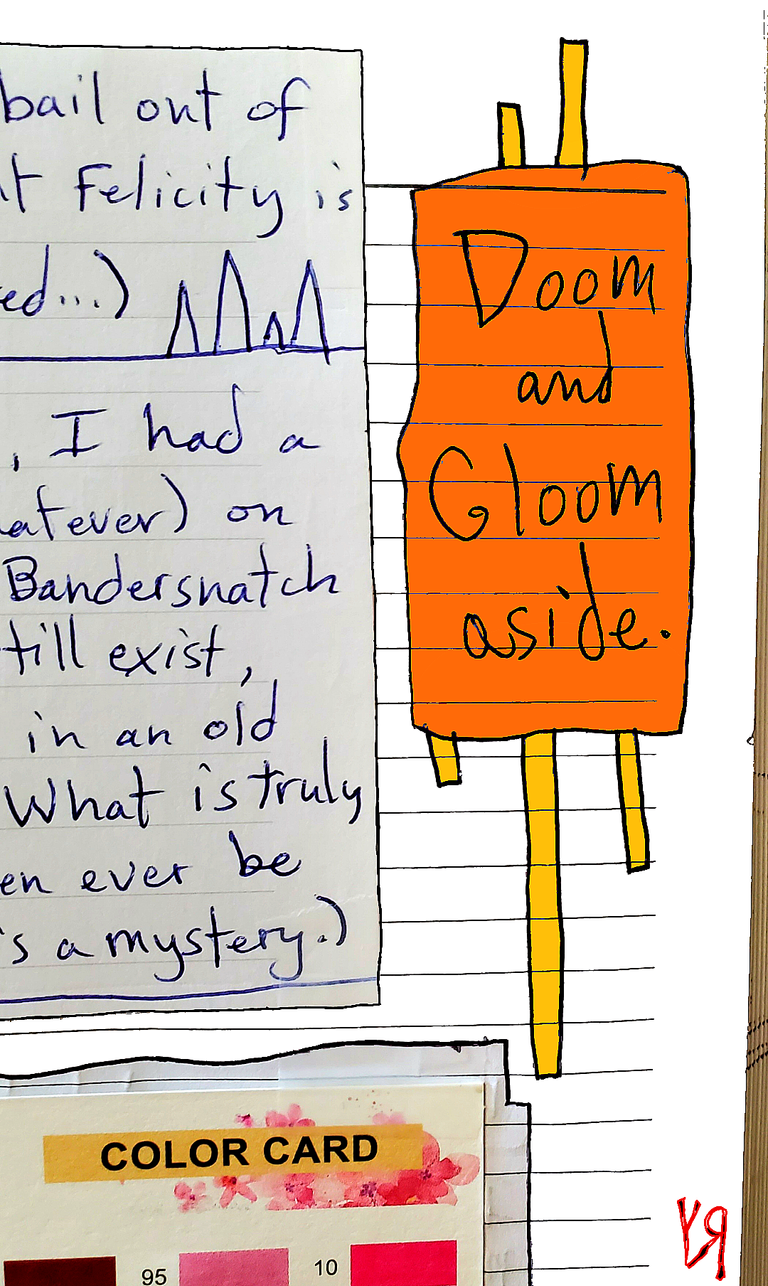 bail out of
t Felicity is
ed...)
, I had a
atever) on
Bandersnatch
till exist,
in an old
What is truly
en ever be
's a mystery.)
Doom
and
Gloom
aside.
COLOR CARD
95
10